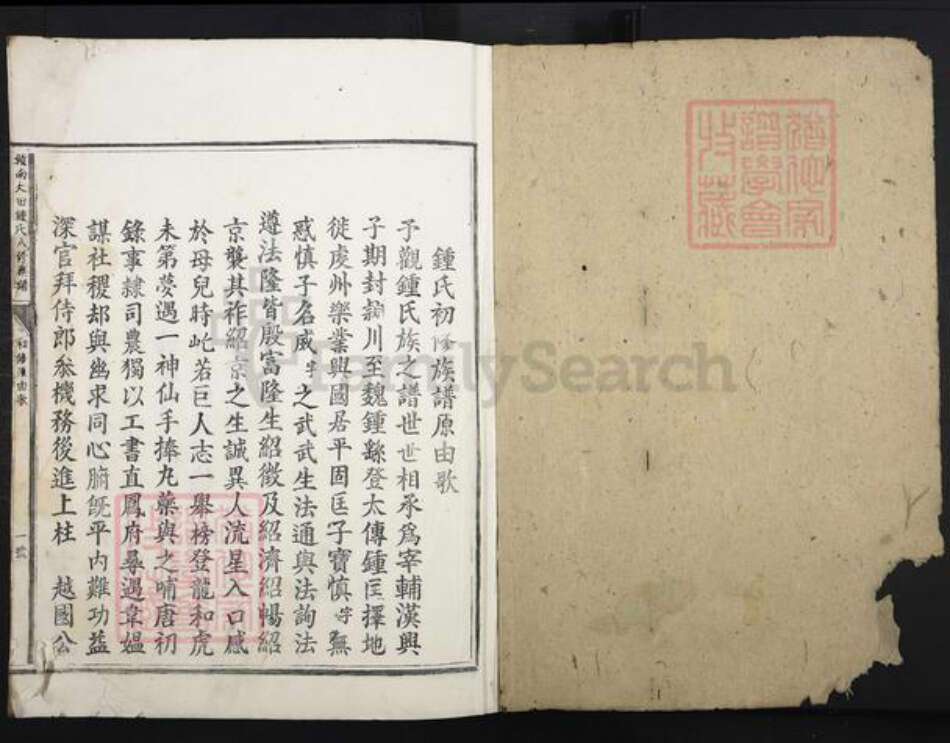 鍾氏初修族譜原由歌
予觀鍾氏族之譜世世相承爲宰輔漢興
子期封潁川至魏鍾繇登太傅鍾匡擇地
徙虔州樂業興國居平固匡子寶慎字無
惑慎子名威字之武武生法通與法詢法
遵法隆皆殷富隆生紹徵及紹濟紹暢紹
京襲其祚紹京之生誠異人流星入口感
於母兒時屹若巨人志一舉榜登龍和虎
未第夢遇一神仙手捧丸藥與之哺唐初
錄事隸司農獨以工書直鳳府尋遇韋媼
謀社稷却與幽求同心腑旣平內難功益
深官拜侍郎叅機務後進上柱 越國公
贛南大田鍾氏八修族譜
初修原由歌
一號
FamilySearch